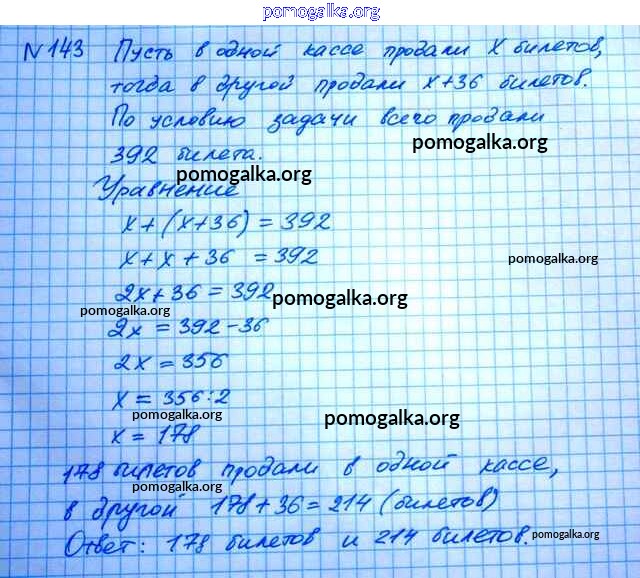 pomogalka.org
N 143 Пусть в одной кассе продали X билетов,
тогда в другой продали x+36 билетов.
По условию задачи всего продали
pomogalka.org
392 билета.
pomogalka.org
Уравнение
x+(x+36) = 392
x+x+36 = 392
pomogalka.org
2x+36 = 392
pomogalka.org
pomogalka.org
2x = 392-36
2x = 356
x = 356:2
pomogalka.org
pomogalka.org
x = 178
178 билетов продали в одной кассе,
pomogalka.org
в другой 178+36=214 (билетов)
Ответ: 178 билетов и 214 билетов.
pomogalka.org